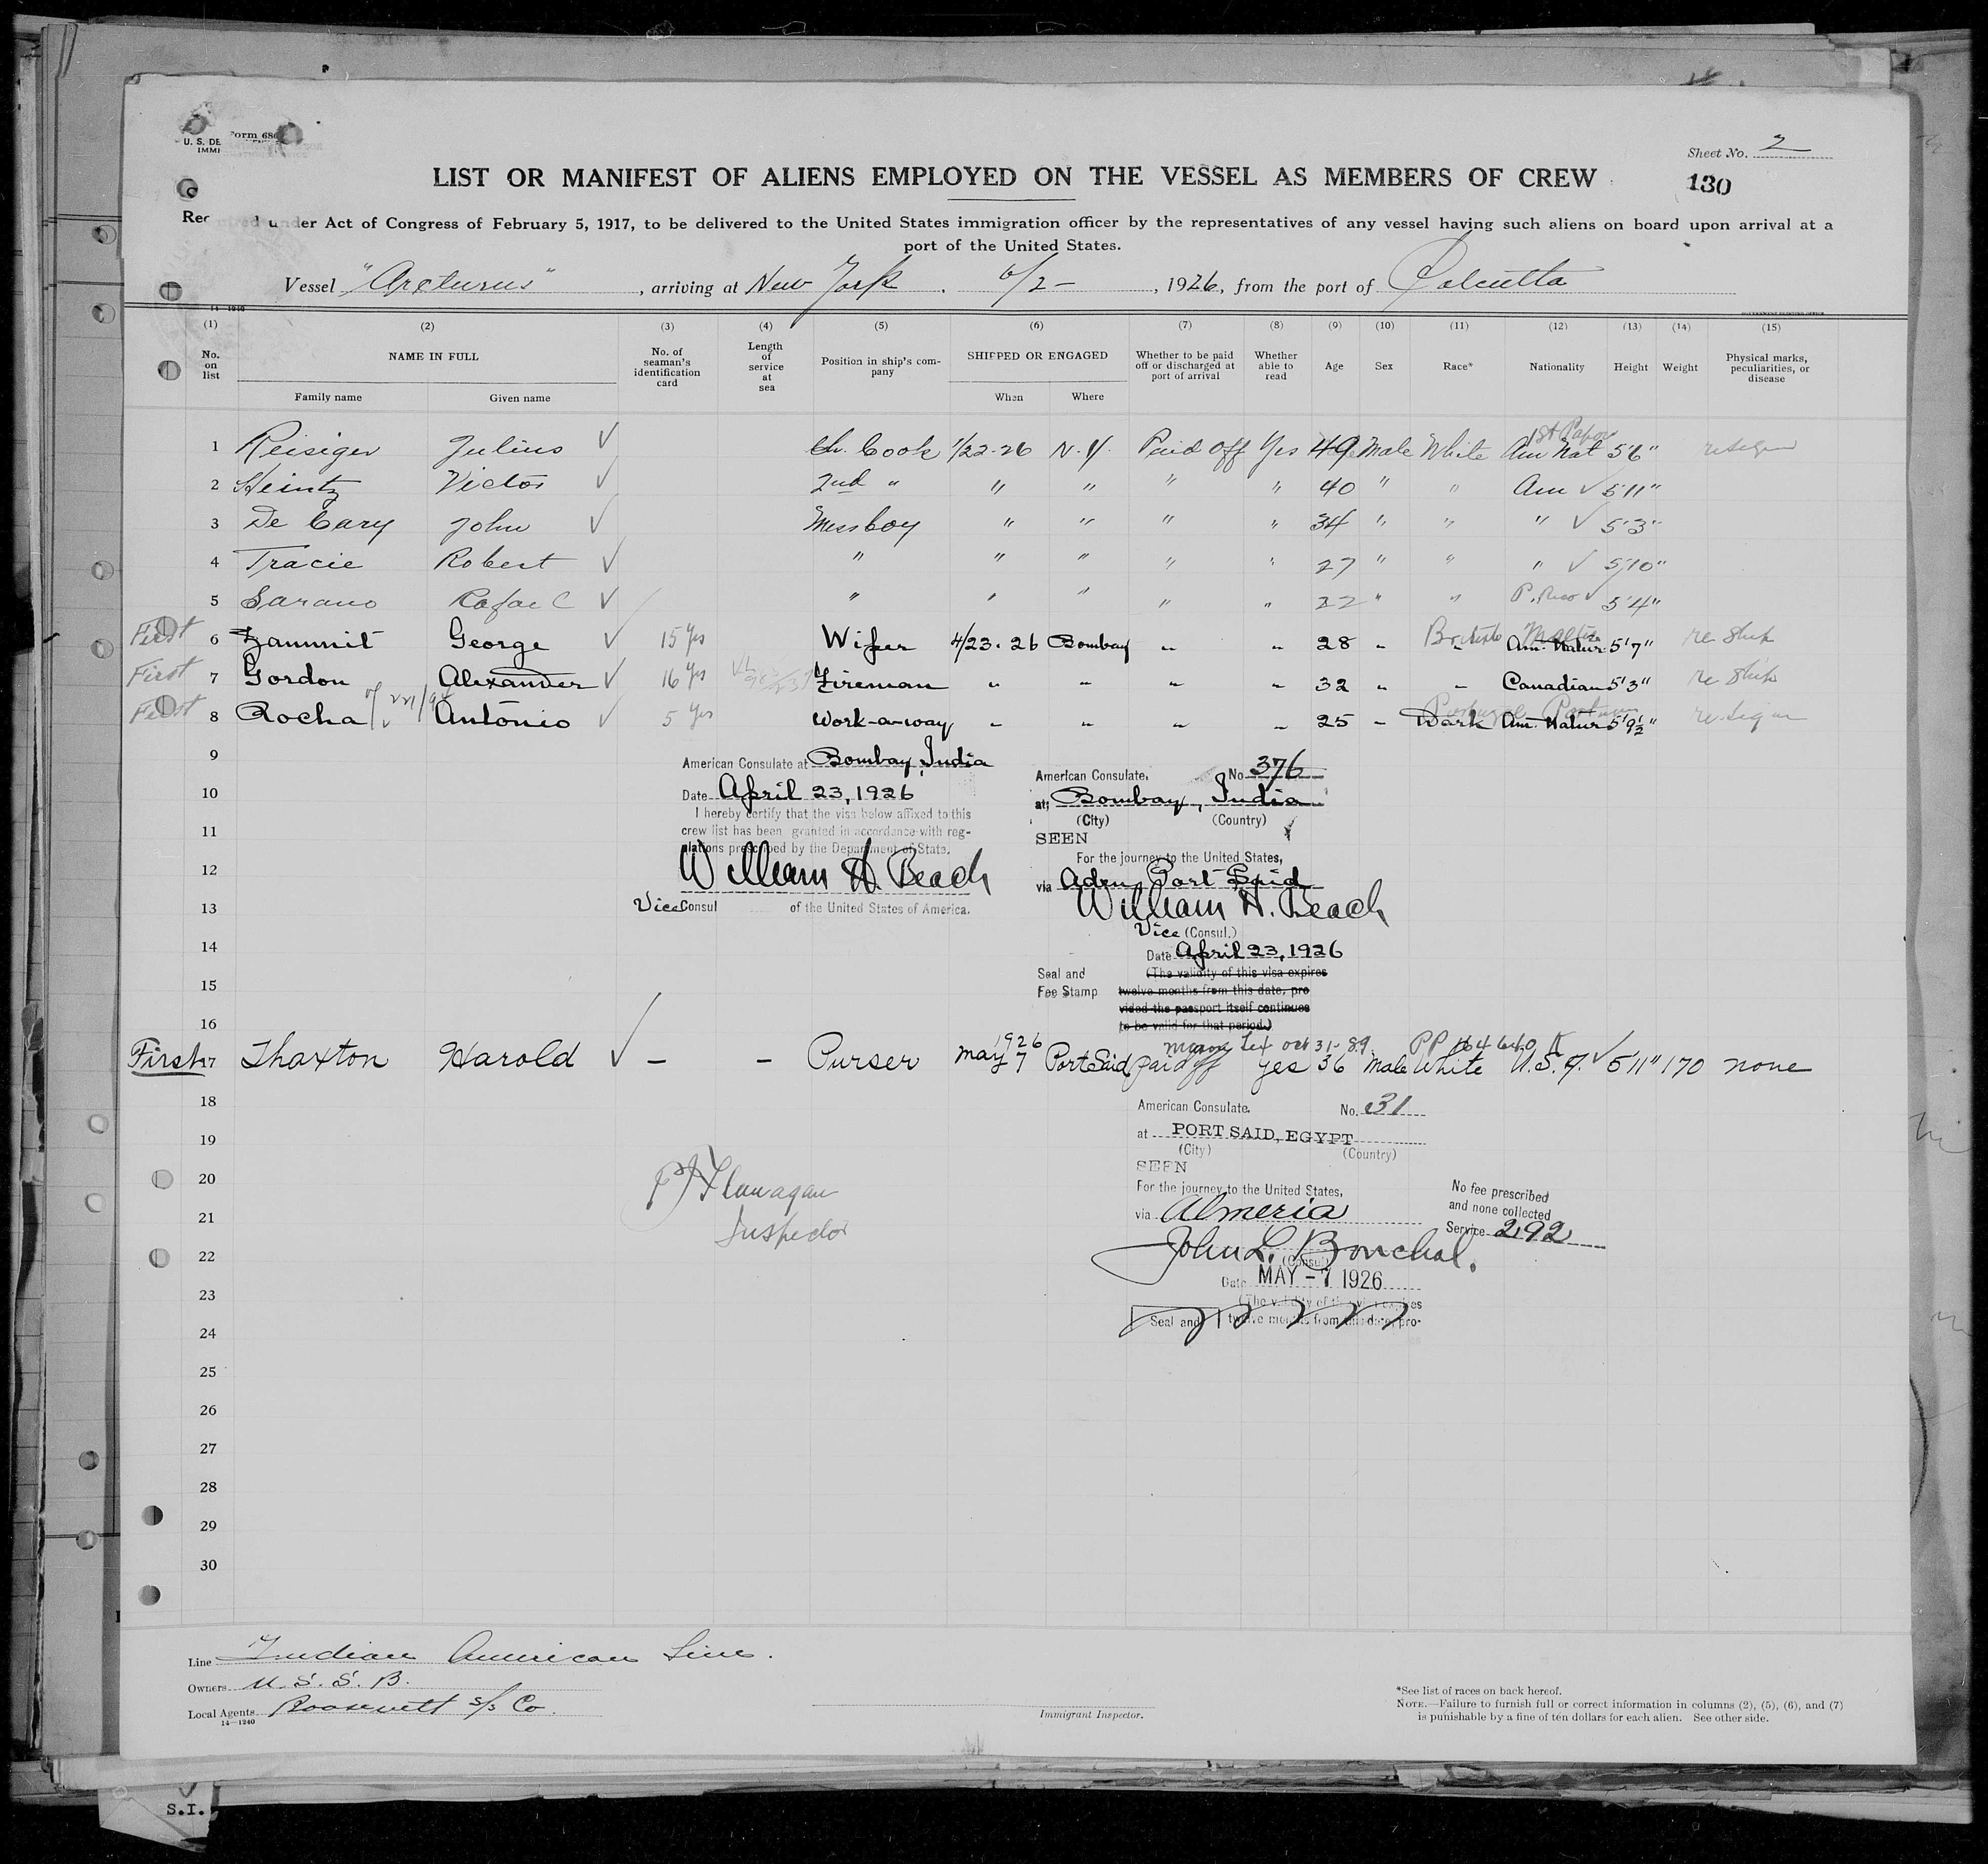 Form 680
U. S. DE
IMMI
Sheet No. 2
LIST OR MANIFEST OF ALIENS EMPLOYED ON THE VESSEL AS MEMBERS OF CREW
130
Required under Act of Congress of February 5, 1917, to be delivered to the United States immigration officer by the representatives of any vessel having such aliens on board upon arrival at a
port of the United States.
Vessel "Arcturus", arriving at New York. 6/2-, 1926, from the port of Calcutta
(1) (2) (3) (4) (5) (6) (7) (8) (9) (10) (11) (12) (13) (14) (15)
No. on list NAME IN FULL Family name Given name No. of seaman's identification card Length of service at sea Position in ship's company SHIPPED OR ENGAGED When Where Whether to be paid off or discharged at port of arrival Whether able to read Age Sex Race* Nationality Height Weight Physical marks, peculiarities, or disease
1st Paper
1 Reisiger Julius ✓ Ch. Cook 1/22-26 N.Y. Paid Off Yes 49 Male White Am Nat 5'6" resign
2 Heintz Victor ✓ 2nd " " " " " 40 " " Am ✓ 5'11"
3 De Cary John ✓ Messboy " " " " 34 " " " ✓ 5'3"
4 Tracie Robert ✓ " " " " " 27 " " " ✓ 5'10"
5 Sarano Rafael ✓ " " " " " 22 " " P. Rico ✓ 5'4"
First 6 Zammit George ✓ 15 Yrs Wiper 4/23.26 Bombay " " 28 " British " Maltese Am. Natur. 5'7" re Ship
First 7 Gordon Alexander ✓ 16 Yrs Fireman " " " " 32 " " Canadian 5'3" re Ship
First 8 Rocha Antonio ✓ 5 Yrs Work-a-way " " " " 25 " Dark Portugal Am. Natur 5'9½" resign
9
10
11
12
13
14
15
16
American Consulate at Bombay, India
Date April 23, 1926
I hereby certify that the visa below affixed to this
crew list has been granted in accordance with reg-
ulations prescribed by the Department of State.
William H. Beach
Vice Consul of the United States of America.
American Consulate. No 376
at: Bombay, India
(City) (Country)
SEEN
For the journey to the United States,
via Aden, Port Said
William H. Beach
Vice (Consul.)
Date April 23, 1926
Seal and (The validity of this visa expires
Fee Stamp twelve months from this date, pro
vided the passport itself continues
to be valid for that period.)
1926 Tex Oct 31-89. PP 164640
First 17 Thaxton Harold ✓ - - Purser May 7 Port Said paid off yes 36 Male White U.S.A. ✓ 5'11" 170 none
18
19
20
21
22
23
24
25
26
27
28
29
30
American Consulate. No. 31
at PORT SAID, EGYPT
(City) (Country)
SEEN
For the journey to the United States,
via Almeria
No fee prescribed
and none collected
Service 292
(Consul)
Date MAY - 7 1926
(The validity of this visa expires
Seal and twelve months from this date, pro-
P J Flanagan
Inspector
Line Indian American Line.
Owners U. S. S. B.
Local Agents Roosevelt S/S Co.
14-1240
Immigrant Inspector.
*See list of races on back hereof.
NOTE.—Failure to furnish full or correct information in columns (2), (5), (6), and (7)
is punishable by a fine of ten dollars for each alien. See other side.
S.I.